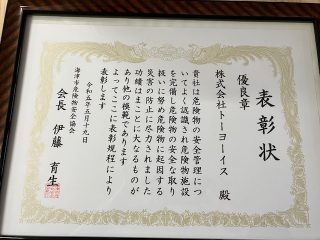 表彰状
優良章
株式会社トーヨーイス 殿
貴社は危険物の安全管理につ
いてよく認識され危険物施設
を完備し危険物の安全な取り
扱いに努め危険物に起因する
災害の防止に尽力されました
功績はまことに大なるものが
あり他の模範であります
よってここに表彰規程により
表彰します
令和五年五月十九日
海津市危険物安全協会
会長 伊藤 育生